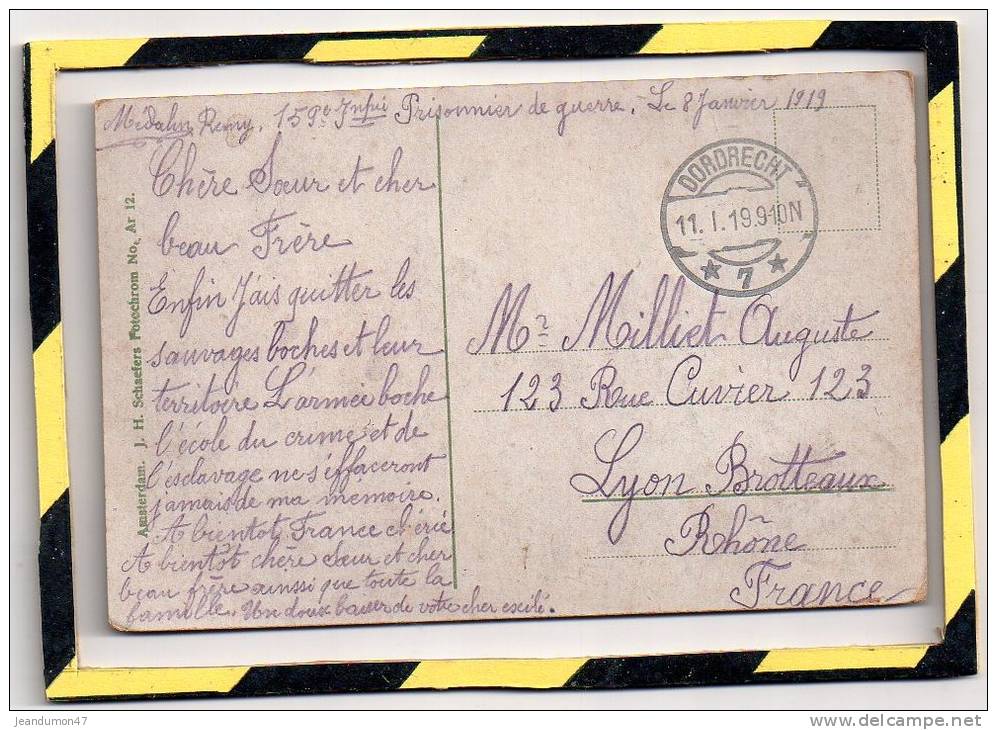 Medalin Remy, 159e Infrie Prisonnier de guerre. Le 8 Janvier 1919
Chère Sœur et cher
beau Frère
Enfin J'ais quitter les
sauvages boches et leur
territoire L'armée boche
l'école du crime et de
l'esclavage ne s'éffaceront
jamais de ma mémoire.
A bientot France chérie
A bientôt chère sœur et cher
beau frère ainssi que toute la
famille. Un doux baiser de votre cher exilé.
Amsterdam. J. H. Schaefers Fotochrom No. Ar 12.
DORDRECHT
11. I. 19.9-10N
* 7 *
Mr Milliet Auguste
123 Rue Cuvier 123
Lyon Brotteaux
Rhône
France
jeandumon47
delcampe.net